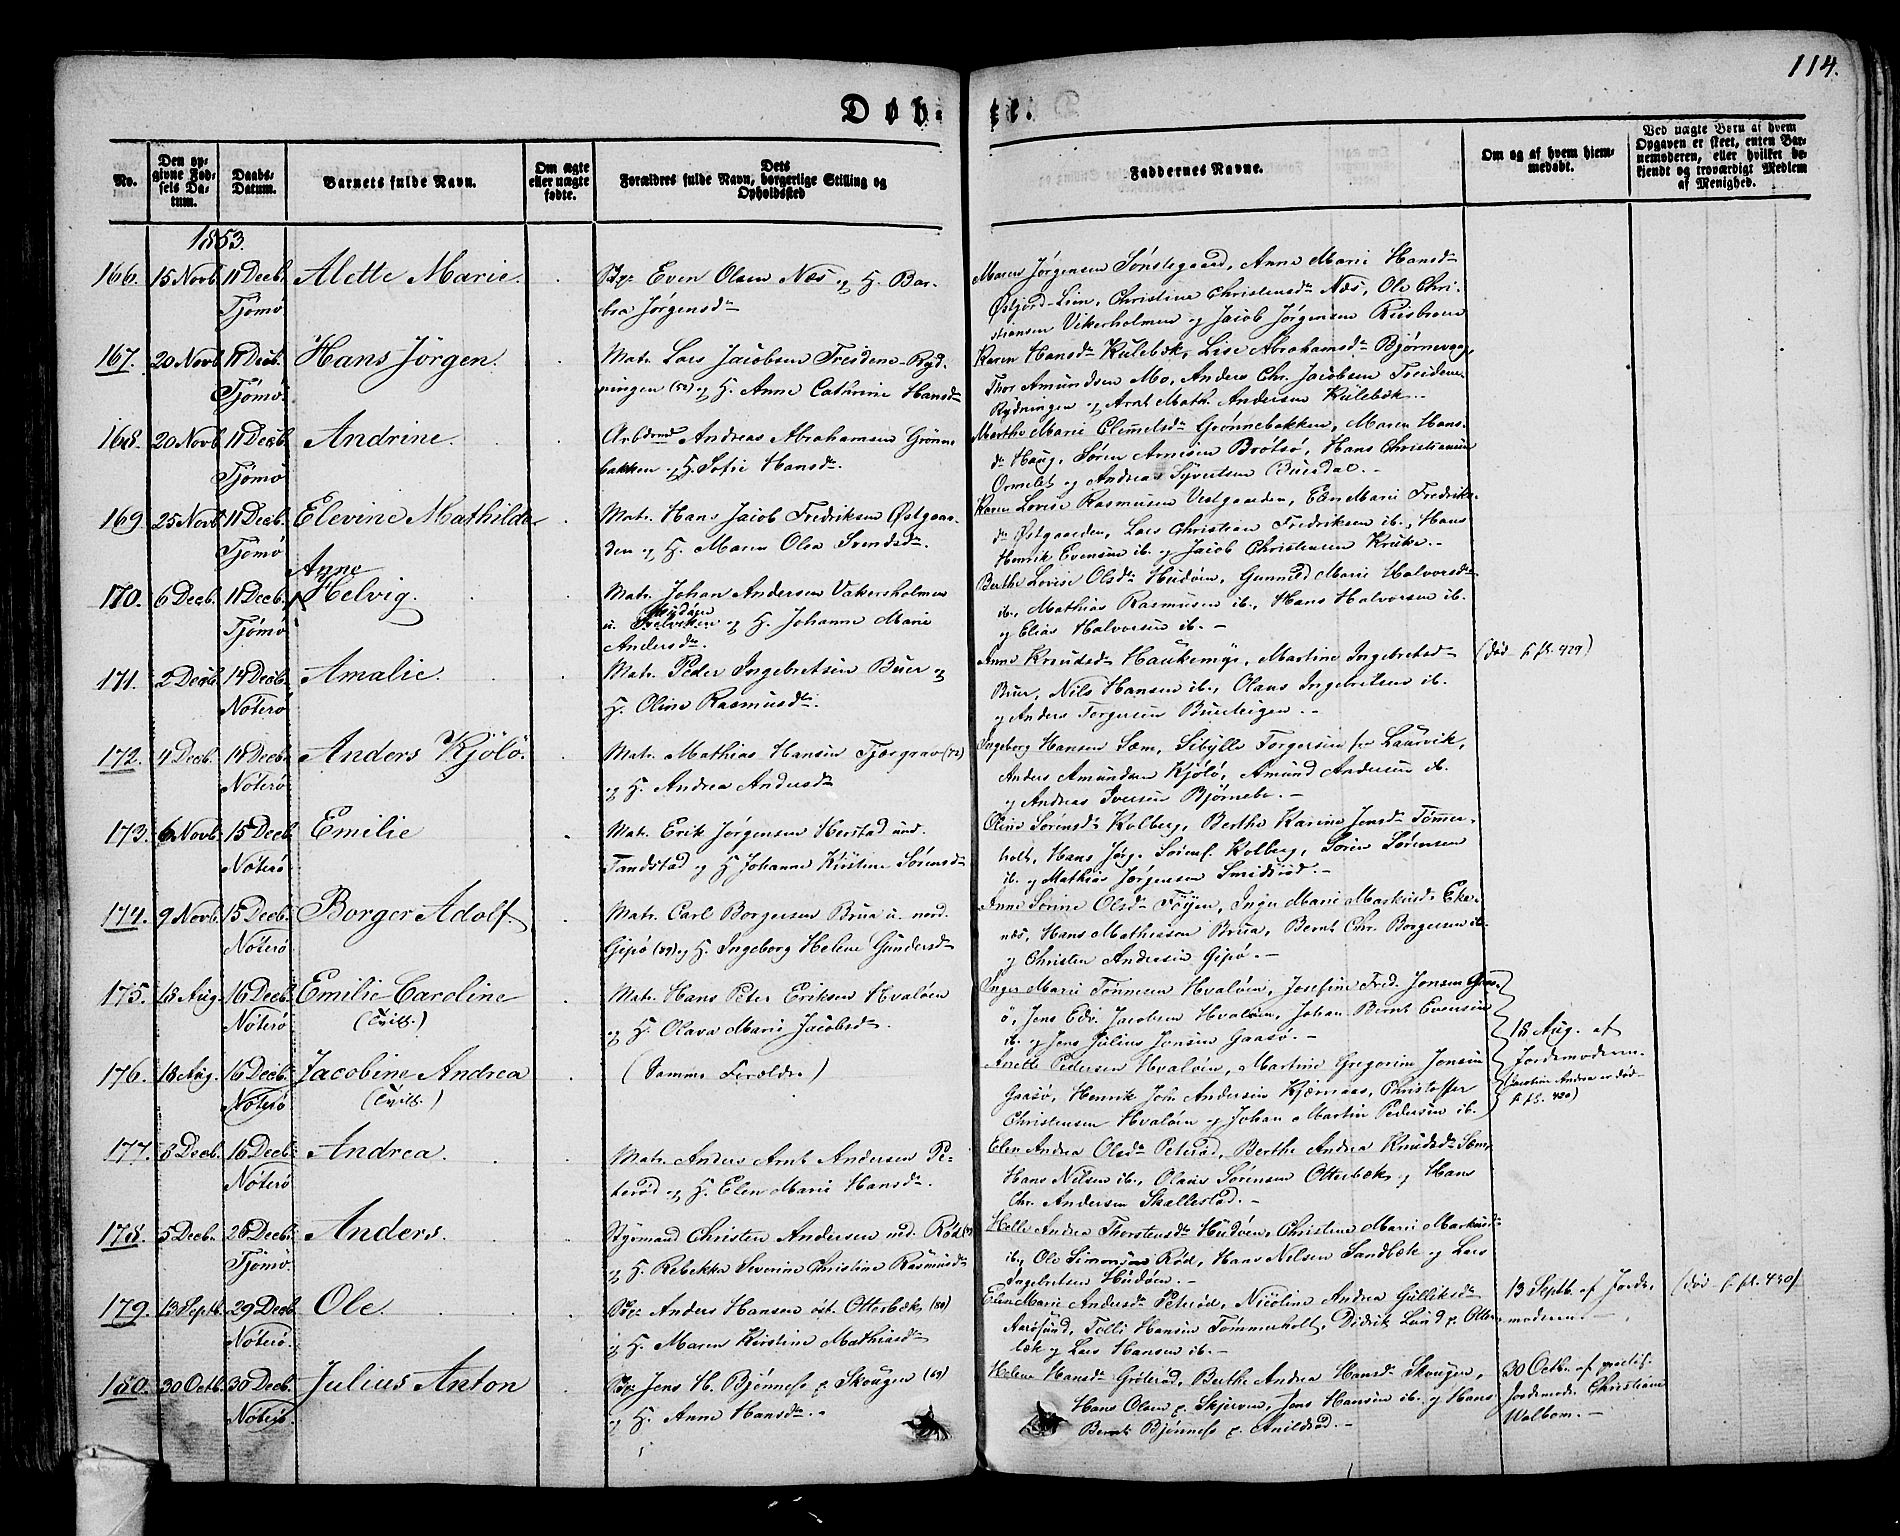 114.
Døb- te.
No.
Den opgivne Fødsels Datum.
Daabs-Datum.
Barnets fulde Navn.
Om ægte eller uægte fødte.
Dets Forældres fulde Navn, borgerlige Stilling og Opholdssted
Faddernes Navne.
Om og af hvem hjemmedøbt.
Ved uægte Børn af hvem Opgaven er skeet, enten Barnemoderen, eller hvilket bekjendt og troværdigt Medlem af Menighed.
1853.
166. 15 Novb. 11 Decb. Tjømø Alette Marie.
Even Olsen Næs og H. Bar-
bra Jørgensd.
Maren Jørgensen Sønstegaard, Anne Marie Hansd.
Østjord-Lien, Christine Christensd. Næs, Ole Chri-
stiansen Vikerholmen og Jacob Jørgensen
167. 20 Novb. 11 Decb. Tjømø. Hans Jørgen.
Matr. Lars Jacobsen Treidene-Ryd-
ningen (52) og H. Anne Cathrine Hansd.
Karen Hansd. Kulebæk, Lise Abrahamsd. Bjørnevaag,
Thor Amundsen Mo, Anders Chr. Jacobsen Treidene-
Rydningen og Arnt Math. Andersen Kulebæk.
168. 20 Novb. 11 Decb. Tjømø Andrine.
Arbdmd Andreas Abrahamsen Grønne-
bakken og H. Sofie Hansd.
Marthe Marie Clemetsd. Grønnebakken, Maren Hans-
d. Haug, Søren Arnesen Brøtsø, Hans Christiansen
Ormelet og Andreas Syvertsen Buesdal.
169. 25 Novb. 11 Decb. Tjømø Elevine Mathilde
Matr. Hans Jacob Fredriksen Østgaar-
den og H. Maren Olea Svendsd.
Karen Lovise Rasmusen Vestgaarden, Elen Marie Fredriks-
d. Østgaarden, Lars Christian Fredriksen ib., Hans
Henrik Evensen ib. og Jacob Christensen Kruke.
170. 6 Decb. 11 Decb. Tjømø Anne Helvig.
Matr. Johan Andersen Vakersholmen
u. Hudøen og H. Johanne Marie
Andersd.
Berthe Lovise Olsd. Hudøen, Gunnild Marie Halvorsd.
ib., Mathias Rasmusen ib., Hans Halvorsen ib.
og Elias Halvorsen ib.
171. 2 Decb. 14 Decb. Nøterø Amalie.
Matr. Peder Ingebretsen Buer og
H. Oline Rasmusd.
Anne Knudsd. Haukemyr, Martine Ingebretsd.
Buer, Nils Hansen ib., Olaus Ingebretsen ib.
og Anders Torgersen Buerteigen.
(død f. fl. 429)
172. 4 Decb. 14 Decb. Nøterø Anders Kjølø.
Matr. Mathias Hansen Tjøsgrav (72)
og H. Andrea Andersd.
Ingeborg Hansen Sem, Sibylle Torgersen fra Laurvik,
Anders Amundsen Kjølø, Amund Andersen ib.
og Andreas Iversen Bjørnebo.
173. 6 Novb. 15 Decb. Nøterø Emilie
Matr. Erik Jørgensen Herstad und.
Tandstad og H. Johanne Kirstine Sørensd.
Oline Sørensd. Kolberg, Berthe Karine Jensd. Tømmer-
holt, Hans Jørg. Sørens. Kolberg, Søren Sørensen
ib. og Mathias Jørgensen Smidsrød.
174. 9 Novb. 15 Decb. Nøterø. Borger Adolf.
Matr. Carl Borgersen Brua u. nord.
Gipø (39) og H. Ingeborg Helene Gundersd.
Anne Sørine Olsd. Føyen, Inger Marie Markusd. Eke-
næs, Hans Mathiasen Brua, Bernt Chr. Borgersen ib.
og Christen Andersen Gipø.
175. 18 Aug. 16 Decb. Nøterø Emilie Caroline
(Tvill.)
Matr. Hans Peter Eriksen Hvaløen
og H. Olava Marie Jacobsd.
Inger Marie Tønnesen Hvaløen, Josefine Fred. Jonsen Gaas-
ø, Jens Edv. Jacobsen Hvaløen, Johan Bernt Evensen
ib. og Jens Julius Jonsen Gaasø.
18 Aug. af
Jordemoderen.
176. 18 Aug. 16 Decb. Nøterø Jacobine Andrea
(Tvill.)
(Samme Forældre)
Anette Pedersen Hvaløen, Martine Gregorine Jonsen
Gaasø, Henrik Joh. Andersen Kjærnaas, Christoffer
Christensen Hvaløen og Johan Martin Pedersen ib.
(Jacobine Andrea er død-
f. fl. 430)
177. 8 Decb. 16 Decb. Nøterø Andrea.
Matr. Anders Arnt Andersen Pe-
terød og H. Elen Marie Hansd.
Elen Andrea Olsd. Peterød, Berthe Andrea Knudsd. Sem,
Hans Nilsen ib., Olaus Sørensen Otterbæk og Hans
Chr. Andersen Skallestad.
178. 5 Decb. 26 Decb. Tjømø. Anders.
Styrmand Christen Andersen ned. Rød
og H. Rebekka Severine Christine Rasmusd.
Helle Andrea Thorstensd. Hudøen, Christine Marie Markusd.
ib., Ole Simonsen Rød, Hans Nilsen Sandbæk og Lars
Ingebretsen Hudøen.
179. 13 Septb. 29 Decb. Nøterø. Ole.
Anders Hansen øst. Otterbæk (50)
og H. Maren Kirstine Mathiasd.
Elen Marie Andersd. Peterød, Nicoline Andrea Gulliksd.
Aarøsund, Tolli Hansen Tømmerholt, Didrik Lund p. Otter-
bæk og Lars Hansen ib.
13 Septb. af Jorde-
moderen.
(død f. fl. 430)
180. 30 Octb. 30 Decb. Nøterø. Julius Anton
Jens H. Bjønnes p. Skougen (69)
og H. Anne Hansd.
Helene Hansd. Grøterød, Berthe Andrea Hansd. Skougen,
Hans Olsen p. Skjerven, Jens Hansen ib. og Hans
Bernt Bjønnes p. Arildsrød.
30 Octb. af
Jordemodr. Christiane
Walbom.